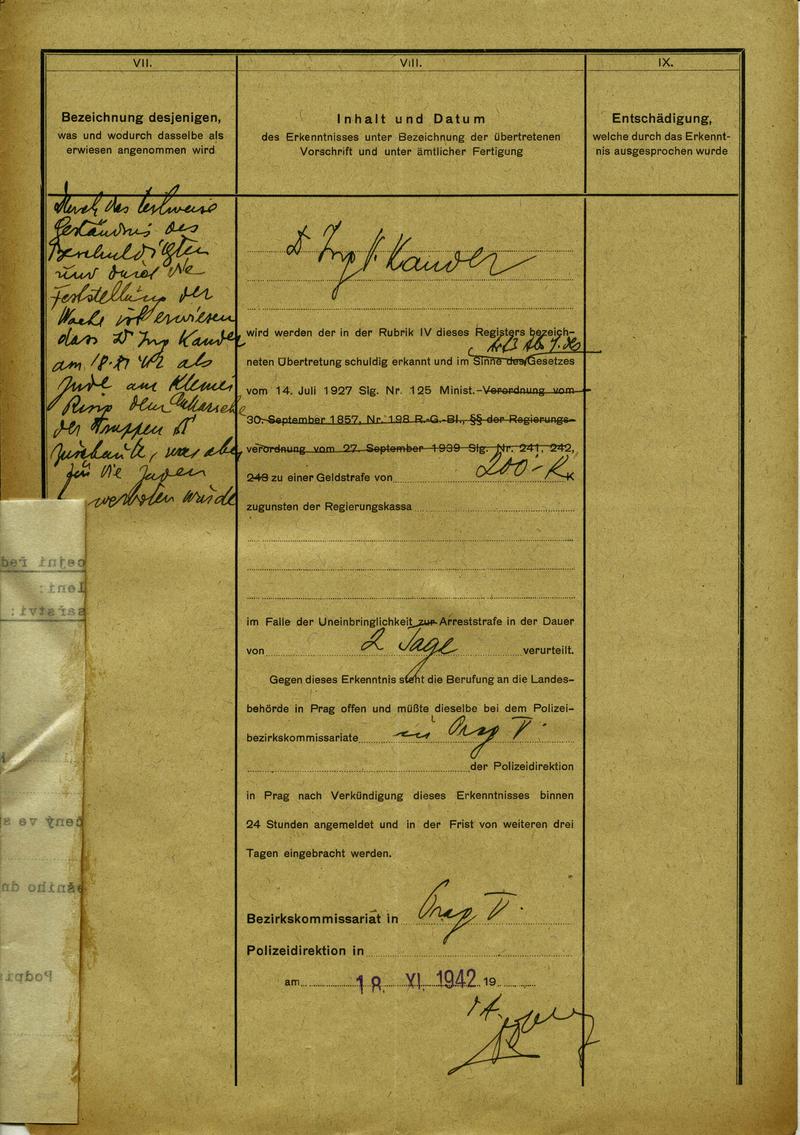 VII.
Bezeichnung desjenigen,
was und wodurch dasselbe als
erwiesen angenommen wird
Durch das teilweise
Geständnis des
Beschuldigten
und durch die
Feststellung der
Wache ist erwiesen
dass Dr Ing Kauder
am 18.XI 42 als
Jude am Kleinen
Ring dem
der Truppen
zuschaute, was aber
für die Juden
verboten wurde
VIII.
Inhalt und Datum
des Erkenntnisses unter Bezeichnung der übertretenen
Vorschrift und unter ämtlicher Fertigung
Dr Ing V. Kauder
wird werden der in der Rubrik IV dieses Registers bezeich-
neten Übertretung schuldig erkannt und im Sinne des Gesetzes
vom 14. Juli 1927 Slg. Nr. 125 Minist.-Verordnung vom
30. September 1857, Nr. 198 R.-G.-Bl., §§ der Regierungs-
verordnung vom 27. September 1939 Slg. Nr. 241, 242,
243 zu einer Geldstrafe von 200.- K K
zugunsten der Regierungskassa
im Falle der Uneinbringlichkeit zur Arreststrafe in der Dauer
von 2 Tage verurteilt.
Gegen dieses Erkenntnis steht die Berufung an die Landes-
behörde in Prag offen und müßte dieselbe bei dem Polizei-
bezirkskommissariate in Prag V.
der Polizeidirektion
in Prag nach Verkündigung dieses Erkenntnisses binnen
24 Stunden angemeldet und in der Frist von weiteren drei
Tagen eingebracht werden.
Bezirkskommissariat in Prag V.
Polizeidirektion in
am 18. XI. 1942 19
IX.
Entschädigung,
welche durch das Erkennt-
nis ausgesprochen wurde